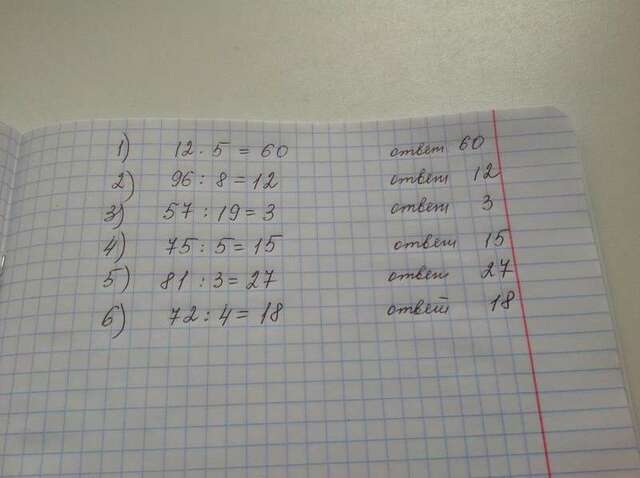 1) 12 · 5 = 60 ответ 60
2) 96 : 8 = 12 ответ 12
3) 57 : 19 = 3 ответ 3
4) 75 : 5 = 15 ответ 15
5) 81 : 3 = 27 ответ 27
6) 72 : 4 = 18 ответ 18